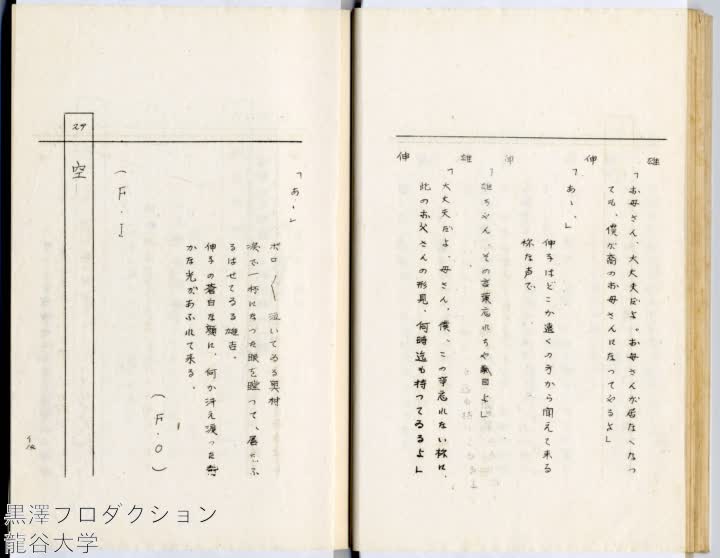 雄
「お母さん、大丈夫だよ。お母さんが居なくなつ
ても、僕が高のお母さんになつてやるよ」
伸
「あゝ、」
伸子はどこか遠くの方から聞えて来る
様な声で
伸
「雄ちやん、その言葉忘れちや駄目よ」
雄
「大丈夫だよ、母さん、僕、この事忘れない様に、
此のお父さんの形見、何時迄も持つてゐるよ」
伸
「あゝ」
ボロ〳〵泣いてゐる奥村
涙で一杯になつた眼を瞠つて、唇をふ
るはせてゐる雄吉。
伸子の蒼白な顔に、何か冴え渡つた静
かな光があふれて来る。
(F・O)
(F・I)
29
空
黒澤プロダクション
龍谷大学